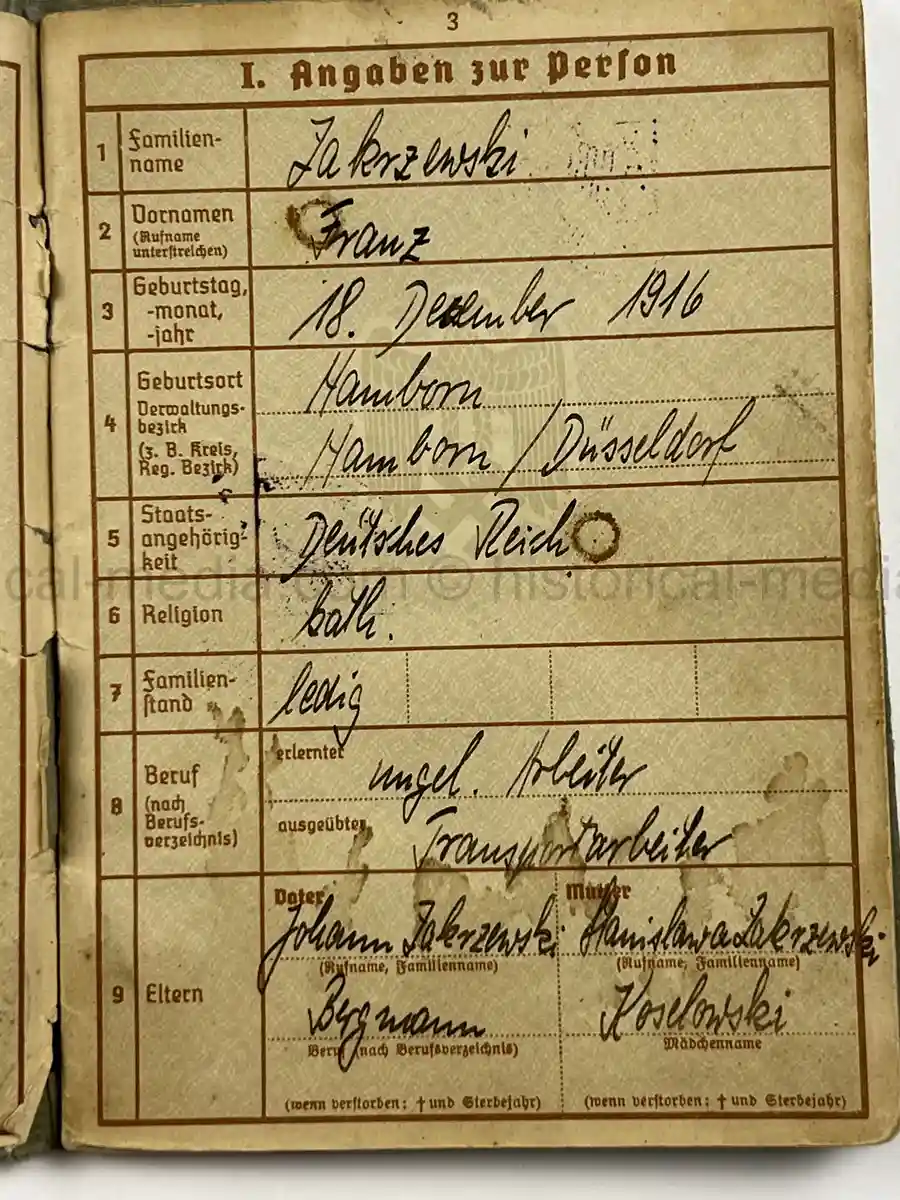 3
I. Angaben zur Person
1 Familien-
name
Zakrzewski
2 Vornamen
(Rufname
unterstreichen)
Franz
3 Geburtstag,
-monat,
-jahr
18. Dezember 1916
4 Geburtsort
Verwaltungs-
bezirk
(z. B. Kreis,
Reg. Bezirk)
Hamborn
Hamborn / Düsseldorf
5 Staats-
angehörig-
keit
Deutsches Reich
cal-media.com © historical-media
6 Religion
kath.
7 Familien-
stand
ledig
8 Beruf
(nach
Berufs-
verzeichnis)
erlernter
ungel. Arbeiter
ausgeübter
Transportarbeiter
9 Eltern
Vater
Johann Zakrzewski
(Rufname, Familienname)
Bergmann
Beruf (nach Berufsverzeichnis)
(wenn verstorben: † und Sterbejahr)
Mutter
Stanislawa Zakrzewski
(Rufname, Familienname)
Koselowski
Mädchenname
(wenn verstorben: † und Sterbejahr)